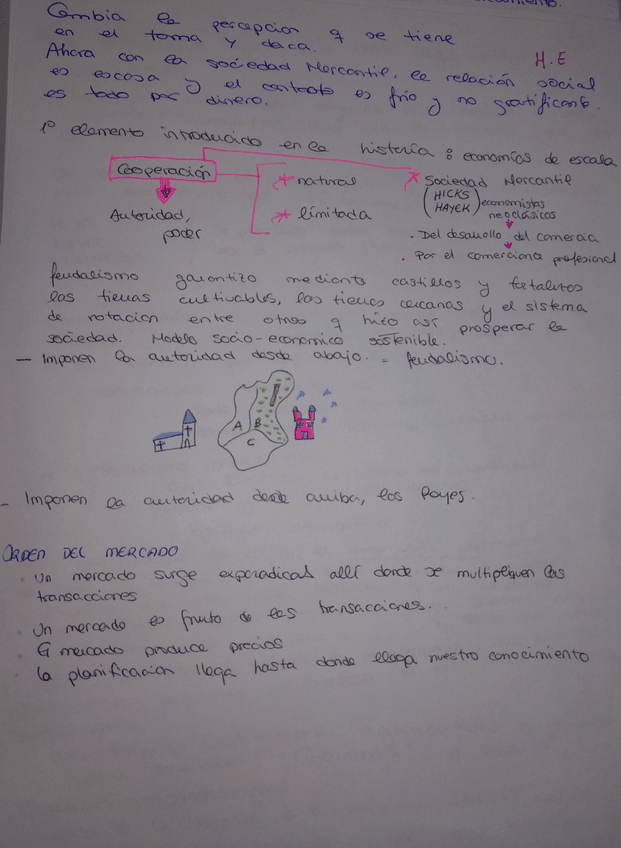 Cambia la percepcion q se tiene
en el toma y daca.
H.E
Ahora con la sociedad Mercantil, la relación social
es escasa y el contacto es frío y no gratificante.
es todo por dinero.
1º elemento introducido en la historia : economías de escala
Cooperación
Autoridad,
poder
* natural
* limitada
* Sociedad Mercantil
(HICKS
HAYEK) economistas
neoclásicos
. Del desarrollo del comercio
. Por el comerciante profesional
feudalismo garantizo mediante castillos y fortalezas
las tierras cultivables, las tierras cercanas y el sistema
de rotacion entre otros q hizo así prosperar la
sociedad. Modelo socio-economico sostenible.
— Imponen la autoridad desde abajo. = feudalismo.
A B
C
- Imponen la autoridad desde arriba, los Reyes.
ORDEN DEL MERCADO
· Un mercado surge allí donde se multipliquen las
transacciones
· Un mercado es fruto de las transacciones.
· El mercado produce precios
· la planificacion llega hasta donde llega nuestro conocimiento